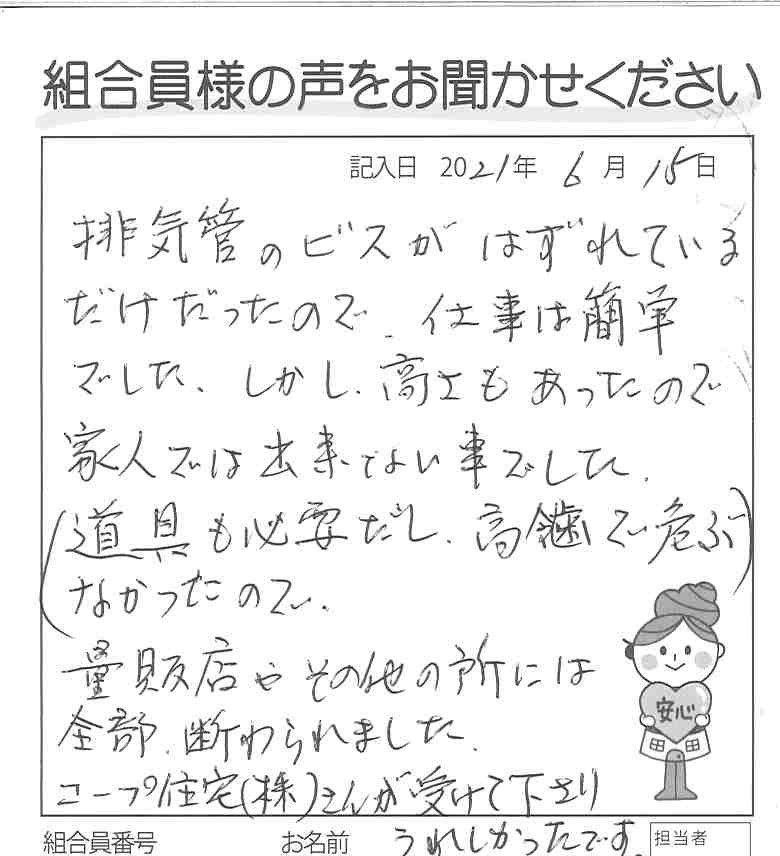 組合員様の声をお聞かせください
記入日 2021年 6月 15日
排気管のビスがはずれている
だけだったので、仕事は簡単
でした、しかし、高さもあったので
家人では出来ない事でした。
(道具も必要だし、高齢で危ぶ
なかったので、)
量販店やその他の所には
全部、断わられました、
コープ住宅(株)さんが受けて下さり
うれしかったです。
安心
組合員番号 お名前 担当者